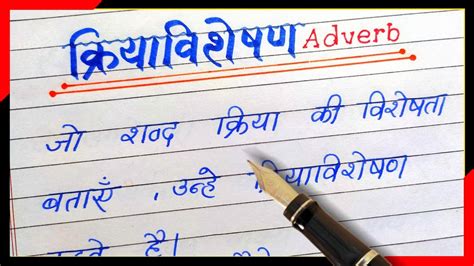 क्रियाविशेषण Adverb
जो शब्द क्रिया की विशेषता
बताएँ , उन्हे क्रियाविशेषण
कहते है।